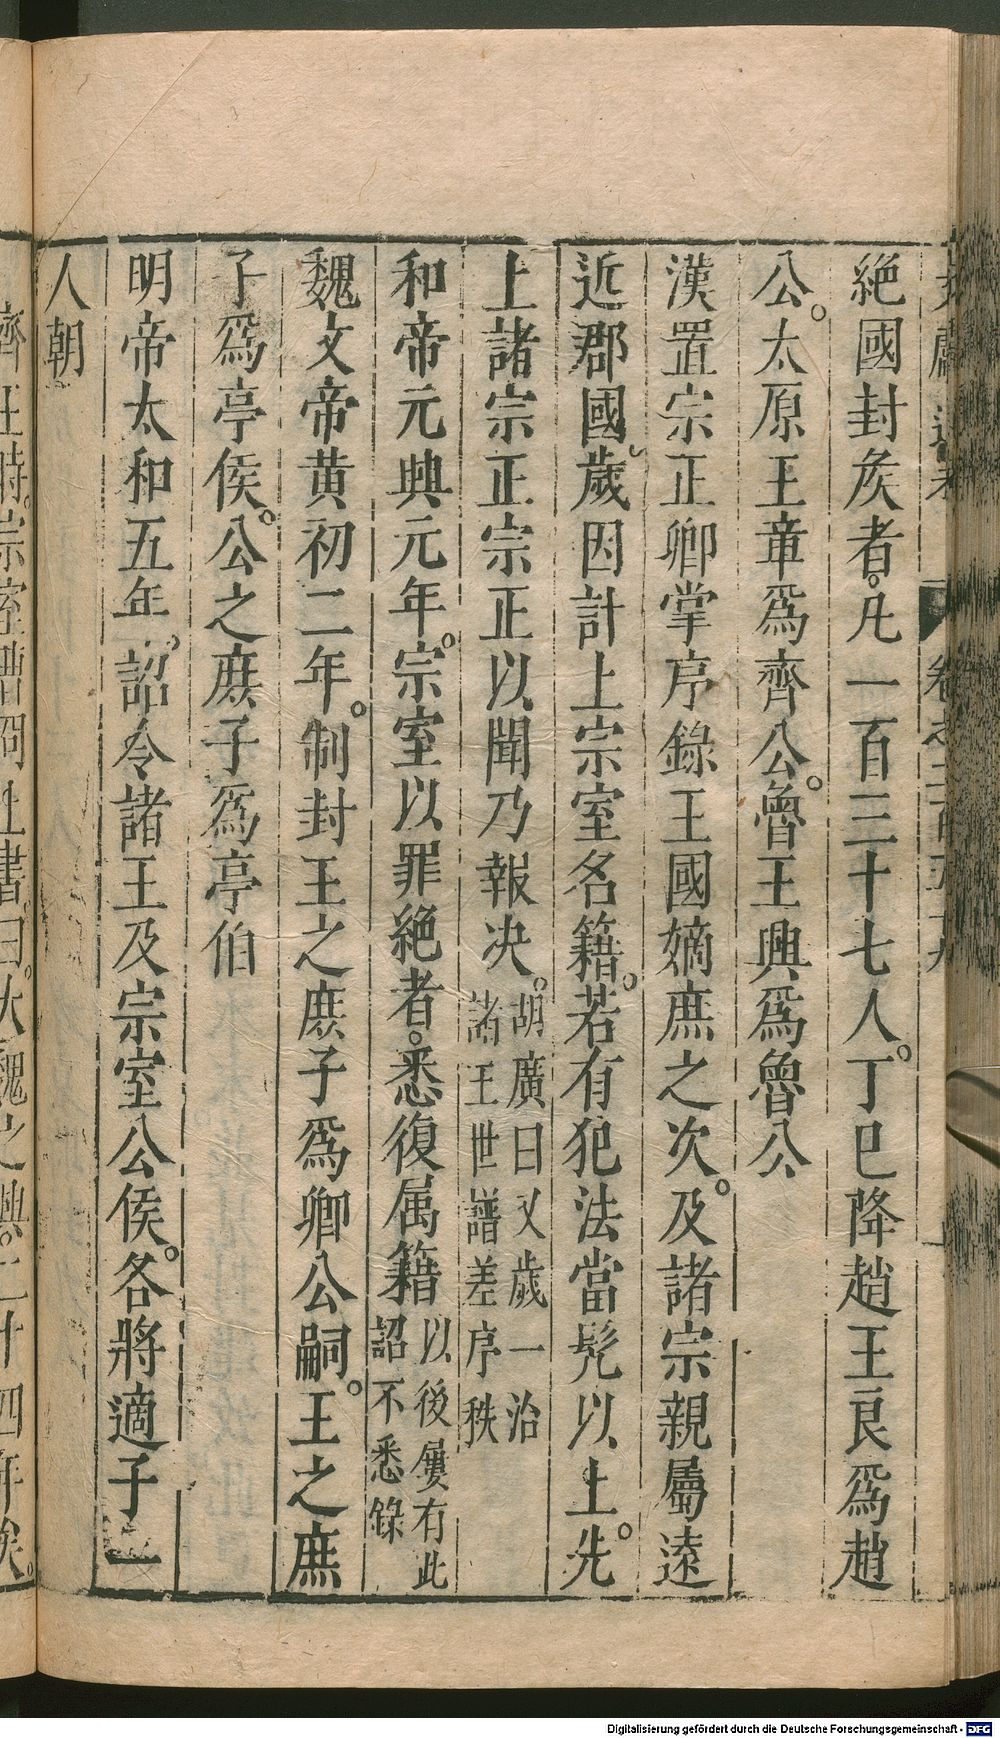 絶國封矦者凡一百三十七人丁巳降趙王良爲趙
公太原王章爲齊公魯王興爲魯公
漢置宗正卿掌序錄王國嫡庶之次及諸宗親屬遠
近郡國歲因計上宗室名籍若有犯法當髠以上先
上諸宗正宗正以聞乃報决
胡廣曰又歲一治
諸王世譜差序秩
和帝元興元年宗室以罪絶者悉復属籍
以後屢有此
詔不悉錄
魏文帝黄初二年制封王之庶子爲卿公嗣王之庶
子爲亭侯公之庶子爲亭伯
明帝太和五年詔令諸王及宗室公侯各將適子一
人朝
書曰大魏之興二十四年矣
Digitalisierung gefördert durch die Deutsche Forschungsgemeinschaft - DFG